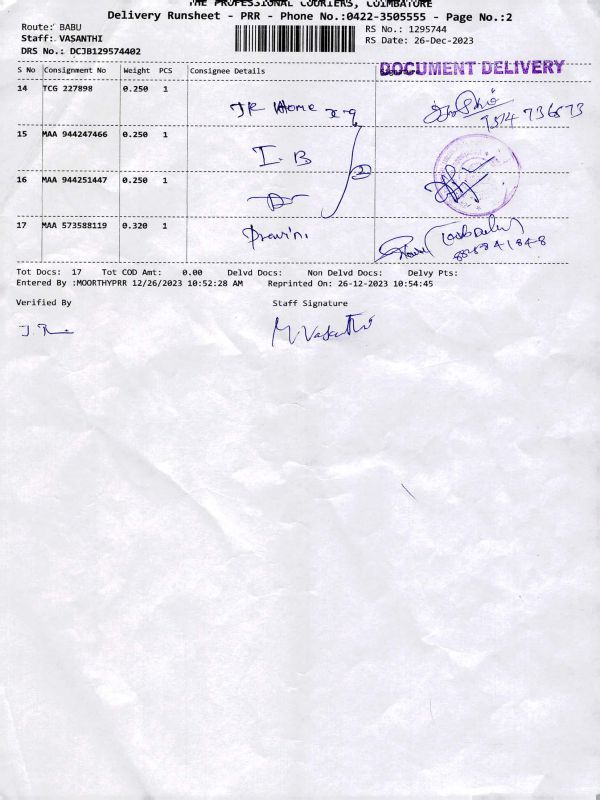 THE PROFESSIONAL COURIERS, COIMBATORE
Delivery Runsheet - PRR - Phone No.:0422-3505555 - Page No.:2
Route: BABU
RS No.: 1295744
Staff: VASANTHI
RS Date: 26-Dec-2023
DRS No.: DCJB129574402
DOCUMENT DELIVERY
S No Consignment No Weight PCS Consignee Details
14 TCG 227898 0.250 1
15 MAA 944247466 0.250 1
I.B
16 MAA 944251447 0.250 1
17 MAA 573588119 0.320 1
Tot Docs: 17 Tot COD Amt: 0.00 Delvd Docs: Non Delvd Docs: Delvy Pts:
Entered By :MOORTHYPRR 12/26/2023 10:52:28 AM Reprinted On: 26-12-2023 10:54:45
Verified By Staff Signature
M. Vasanthi